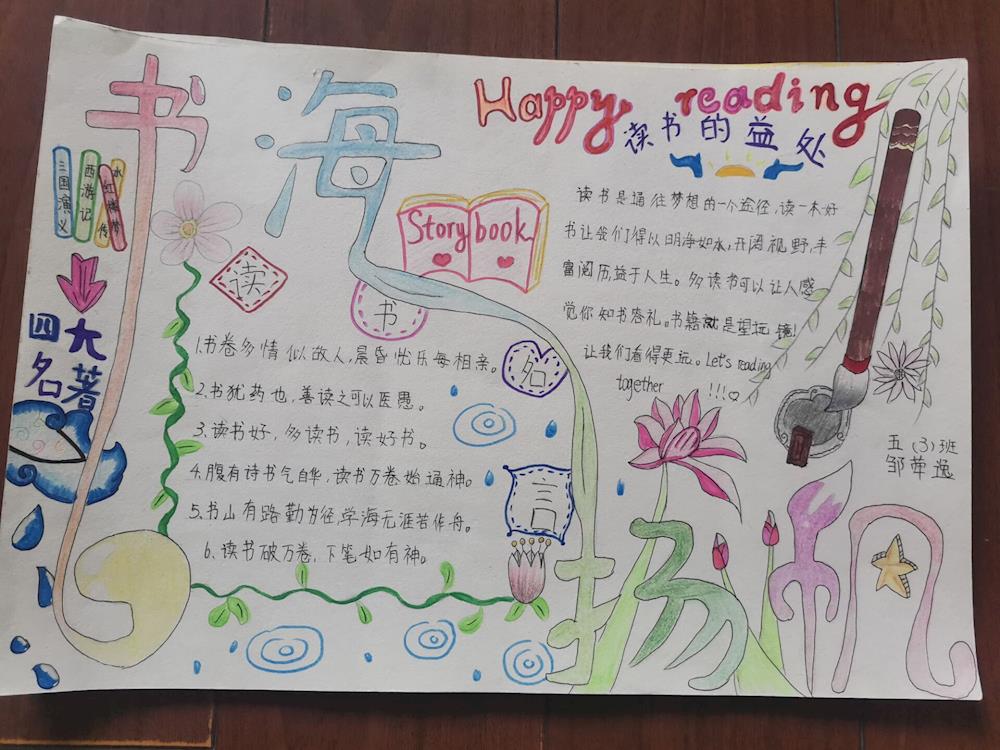 书海
扬帆
Happy reading
读书的益处
三国演义
西游记
水
传
红楼梦
四大
名著
Story book
读
书
名
言
读书是通往梦想的一个途径,读一本好
书让我们得以明净如水,开阔视野,丰
富阅历,益于人生。多读书可以让人感
觉你知书容礼。书籍就是望远镜!
让我们看得更远。Let's reading
together !!!
1.书卷多情似故人,晨昏忧乐每相亲。
2.书犹药也,善读之可以医愚。
3.读书好,多读书,读好书。
4.腹有诗书气自华,读书万卷始通神。
5.书山有路勤为径,学海无涯苦作舟。
6.读书破万卷,下笔如有神。
五(3)班